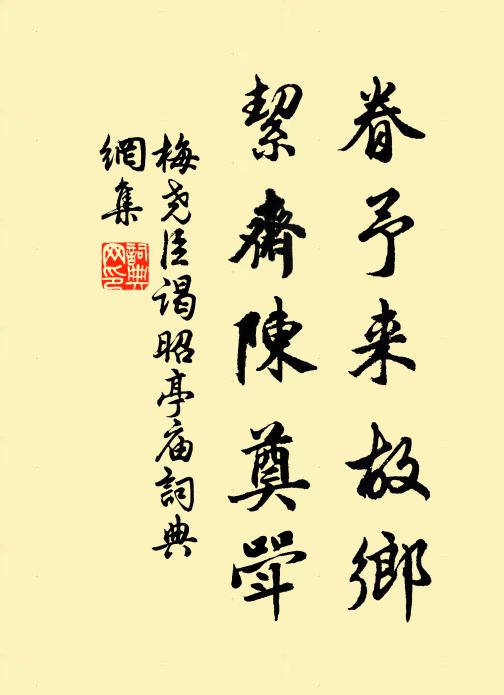 眷予来故鄉
絜齋陳奠斝
梅尧臣谒昭亭庙詞典
網集
詞典網印